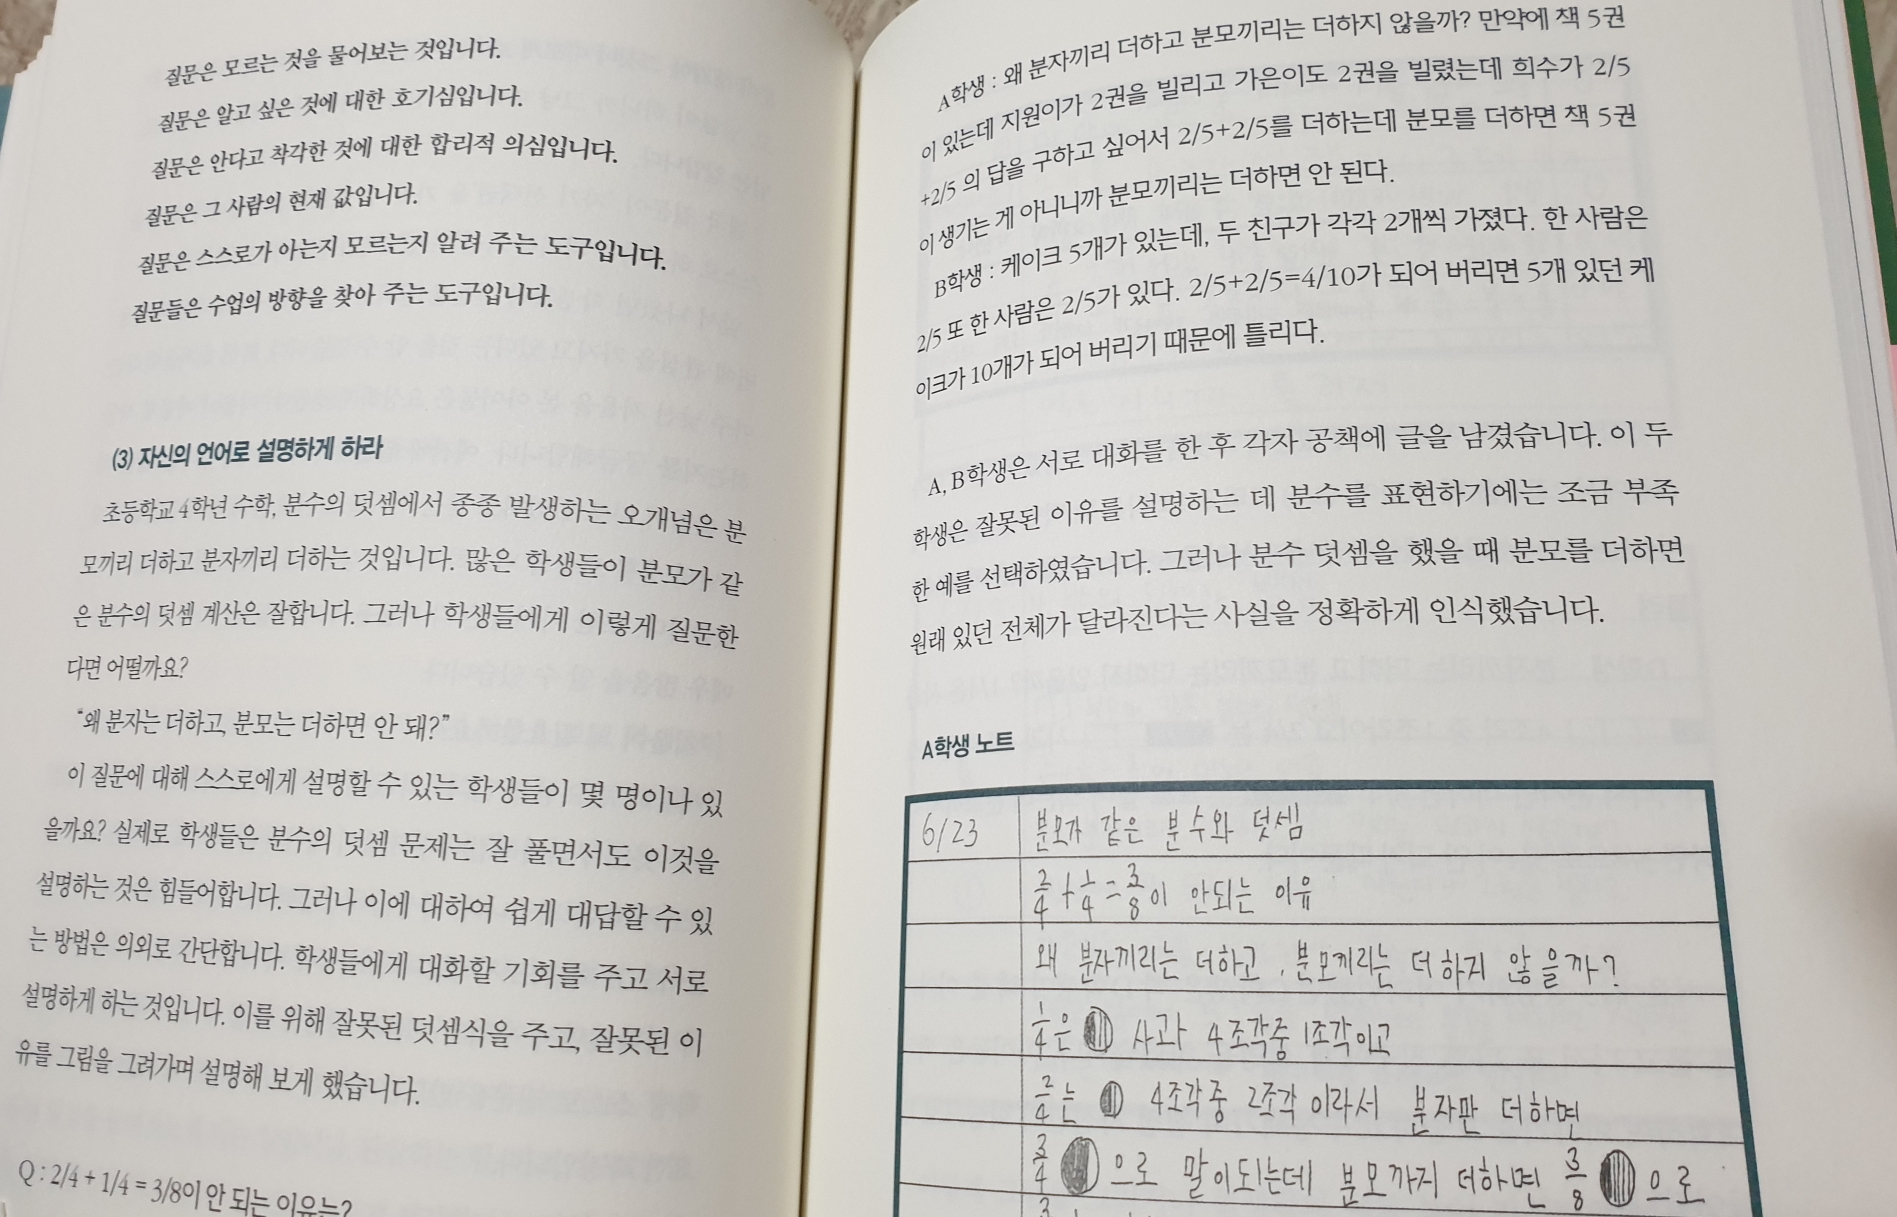 질문은 모르는 것을 물어보는 것입니다.
질문은 알고 싶은 것에 대한 호기심입니다.
질문은 안다고 착각한 것에 대한 합리적 의심입니다.
질문은 그 사람의 현재 값입니다.
질문은 스스로가 아는지 모르는지 알려 주는 도구입니다.
질문들은 수업의 방향을 찾아 주는 도구입니다.
(3) 자신의 언어로 설명하게 하라
초등학교 4학년 수학, 분수의 덧셈에서 종종 발생하는 오개념은 분
모끼리 더하고 분자끼리 더하는 것입니다. 많은 학생들이 분모가 같
은 분수의 덧셈 계산은 잘합니다. 그러나 학생들에게 이렇게 질문한
다면 어떨까요?
“왜 분자는 더하고, 분모는 더하면 안 돼?”
이 질문에 대해 스스로에게 설명할 수 있는 학생들이 몇 명이나 있
을까요? 실제로 학생들은 분수의 덧셈 문제는 잘 풀면서도 이것을
설명하는 것은 힘들어합니다. 그러나 이에 대하여 쉽게 대답할 수 있
는 방법은 의외로 간단합니다. 학생들에게 대화할 기회를 주고 서로
설명하게 하는 것입니다. 이를 위해 잘못된 덧셈식을 주고, 잘못된 이
유를 그림을 그려가며 설명해 보게 했습니다.
Q : 2/4 + 1/4 = 3/8이 안 되는 이유는?
A학생 : 왜 분자끼리 더하고 분모끼리는 더하지 않을까? 만약에 책 5권
이 있는데 지원이가 2권을 빌리고 가은이도 2권을 빌렸는데 희수가 2/5
+2/5 의 답을 구하고 싶어서 2/5+2/5를 더하는데 분모를 더하면 책 5권
이 생기는 게 아니니까 분모끼리는 더하면 안 된다.
B학생 : 케이크 5개가 있는데, 두 친구가 각각 2개씩 가졌다. 한 사람은
2/5 또 한 사람은 2/5가 있다. 2/5+2/5=4/10가 되어 버리면 5개 있던 케
이크가 10개가 되어 버리기 때문에 틀리다.
A, B학생은 서로 대화를 한 후 각자 공책에 글을 남겼습니다. 이 두
학생은 잘못된 이유를 설명하는 데 분수를 표현하기에는 조금 부족
한 예를 선택하였습니다. 그러나 분수 덧셈을 했을 때 분모를 더하면
원래 있던 전체가 달라진다는 사실을 정확하게 인식했습니다.
A학생 노트
6/23 분모가 같은 분수와 덧셈
2/4 + 1/4 = 3/8이 안되는 이유
왜 분자끼리는 더하고, 분모끼리는 더하지 않을까?
1/4은 사과 4조각중 1조각이고
2/4는 4조각중 2조각 이라서 분자만 더하면
3/4 으로 말이되는데 분모까지 더하면 3/8 으로